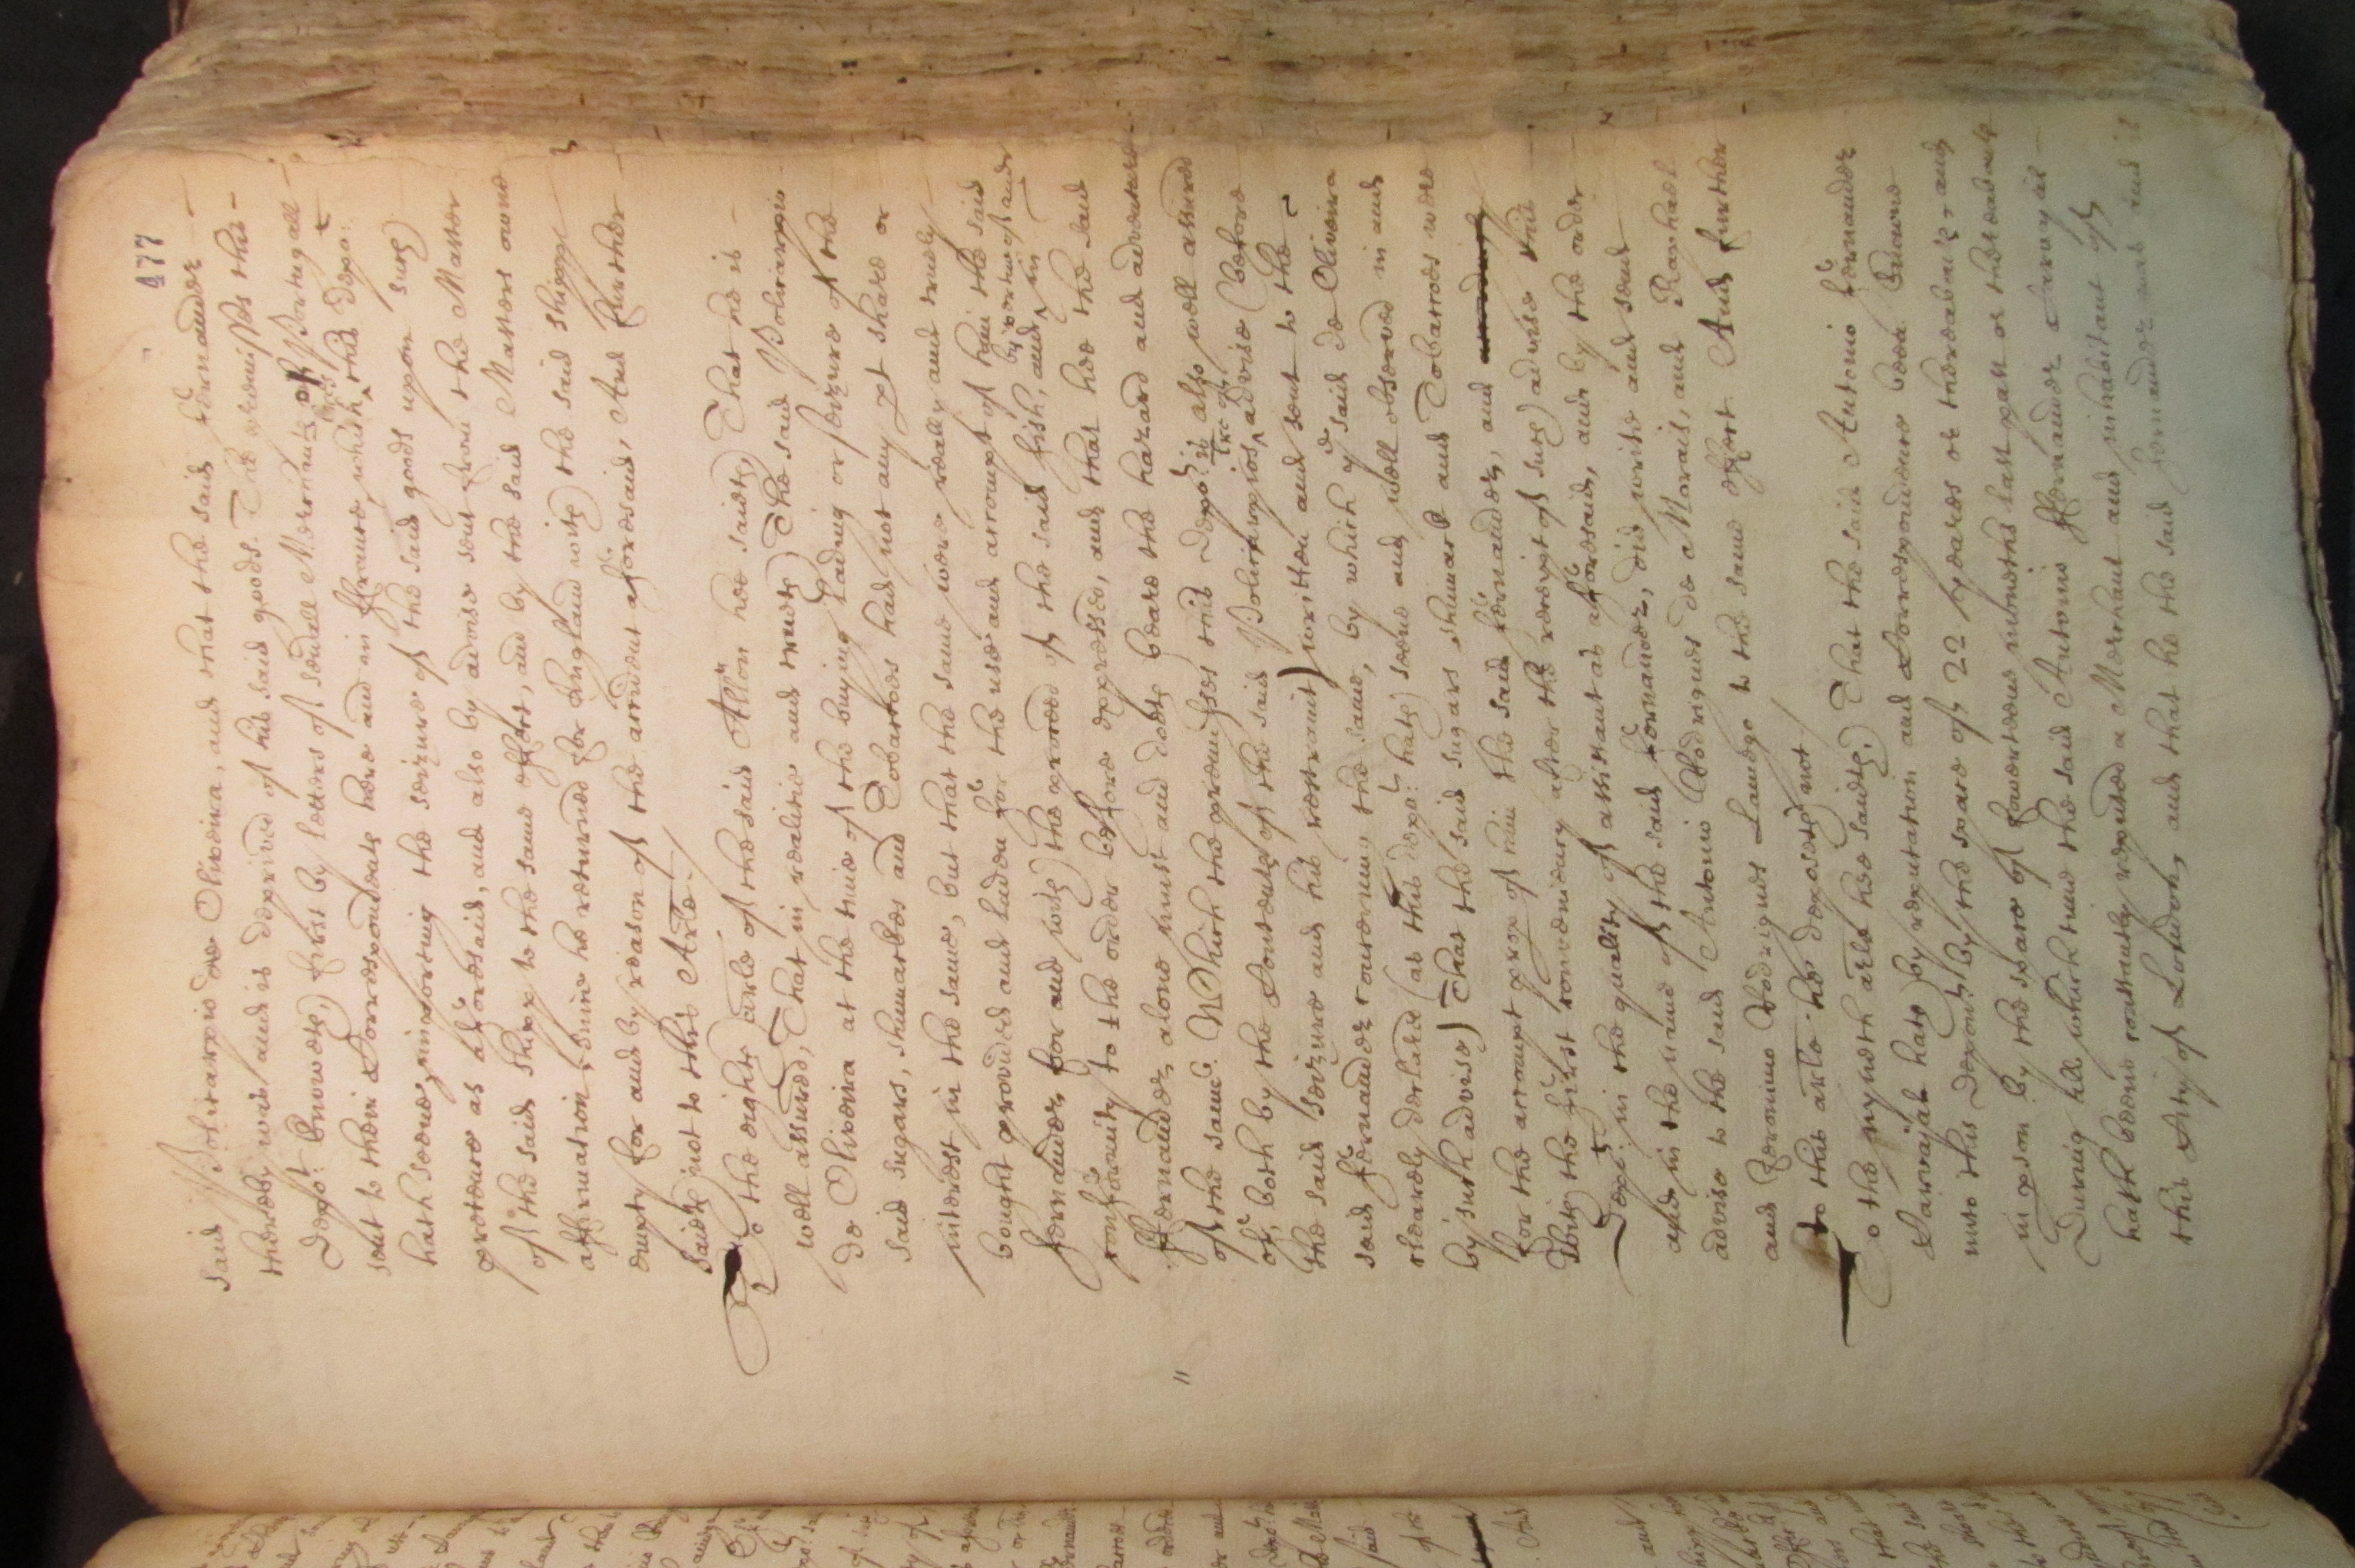 477
said Policarpio de Oliveira, and that the said Fernandez
thereby was and is deprived of his said goods. The premisses this
depo:t knoweth, first by letters of severall Merchants of Portugall
sent to their Correspondents here and in ffrance, which this depo:t
hath seene, importing the seizure of the said goods upon such
pretence as aforesaid, and also by advise sent from the Master
of the said shipp to the same effect, and by the said Masters owne
affirmation, since he returned for England with the said shippe
empty for and by reason of the accident aforesaid, And further
saith not to this Arle
To the eighth arle of the said Allon hee saith, That he is
well assured, That in realitie and truth The said Policarpio
de Oliveira at the time of the buying lading or seizure of the
said sugars, shumackes and Tobaccoes had not any pt share or
interest in the same, but that the same were really and truely
bought provided and laden for the use and accompt of him the said
by vertue of and
Fernandez for and with the proceed of the said fish, and in
conformity to the order before expressed, and that hee the said
ffernandez alone must and doth beare the hazard and adventure
of the same. Which the premisses this depo:t is also well assured
of, both by the Contents of the said Policarpios advise (before
the said seizure and his restraint) written and sent to the
said Fernandez concerning the same, by which ye said de Oliveira
clearely declared (as this depo:t hath seene and well observed in and
by such advise) That the said sugars shumack and Tobaccoes were
for the accompt prop of him the said Fernandez, and
with the first conveniency after the receipt of such advise this
Depo:t in the quality of assistant as aforesaid, and by the order
and in the name of the said Fernandez, did write and send
advise to the said Antonio Rodrigues de Morais, and Raphael
and Jeronimo Rodrigues Lamego to the same effect. And further
to this arle he deposeth not
To the nyneth arle hee saith, That the said Antonio Fernandez
Carvajal hath by reputation and Correspondence been knowne
unto this depon:t by the space of 22 yeares or thereabouts, and
in pson by the space of fowerteene moneths last past or thereabouts
During all which time the said Antonio ffernandez Carvajal
hath beene constantly reputed a Merchant and inhabitant of
this City of London, and that he the said Fernandez was and is